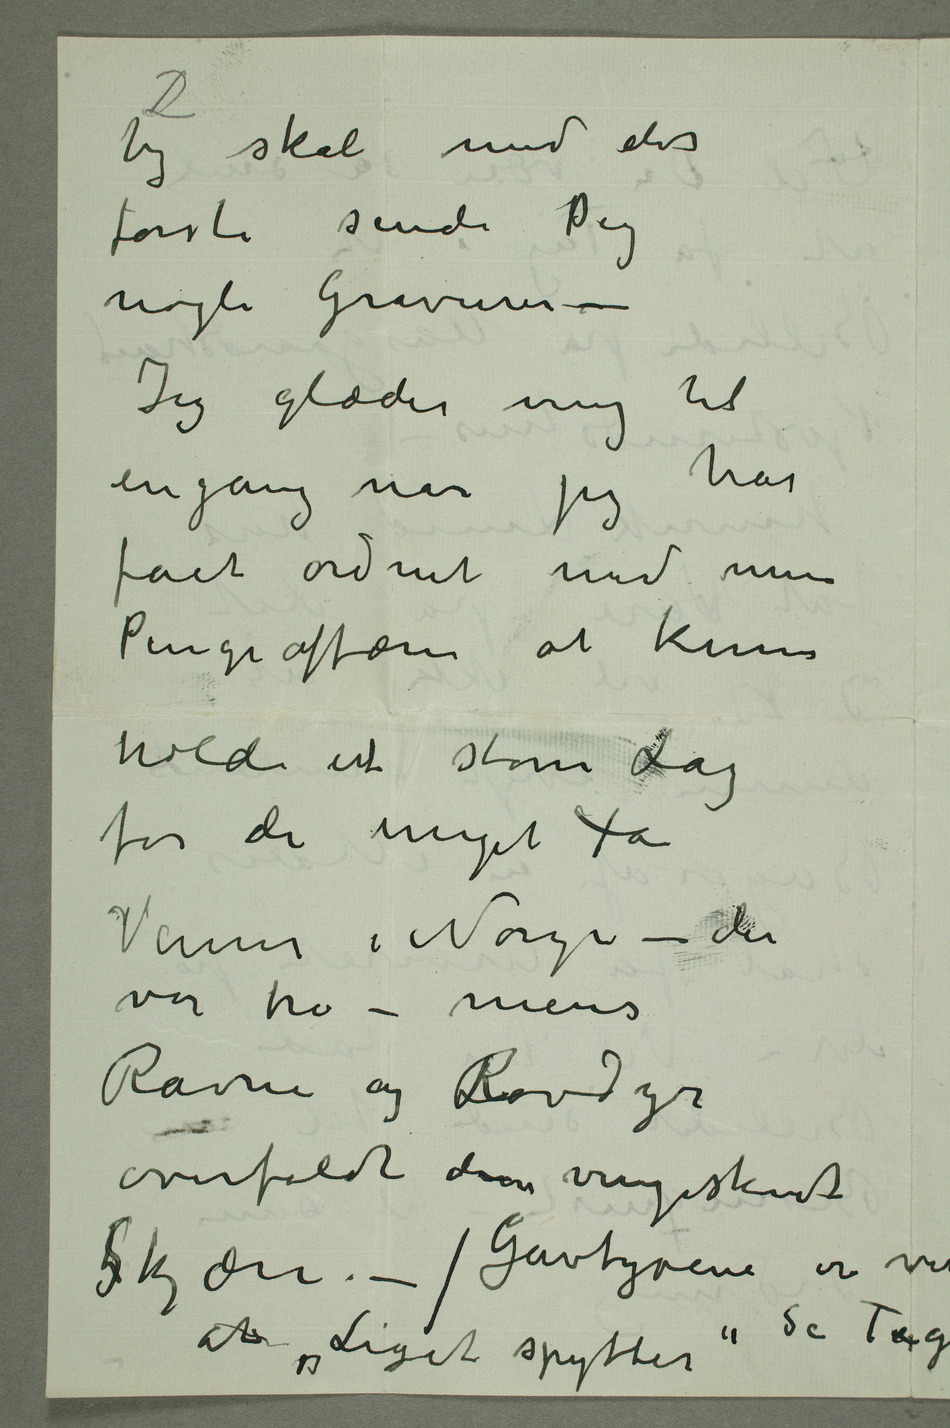 2
Jeg skal med det
første sende Dig
nogle Gravurer —
Jeg glæder mig til
engang når jeg har
fået ordnet med mine
Pengeaffærer at kunne
holde et større Lag
for de meget få
Venner i Norge — der
var tro — mens
Ravne og Rovdyr
overfaldt den vingeskudt
Skjære. — / Gavtyvene er
at „Liget spytter" Se